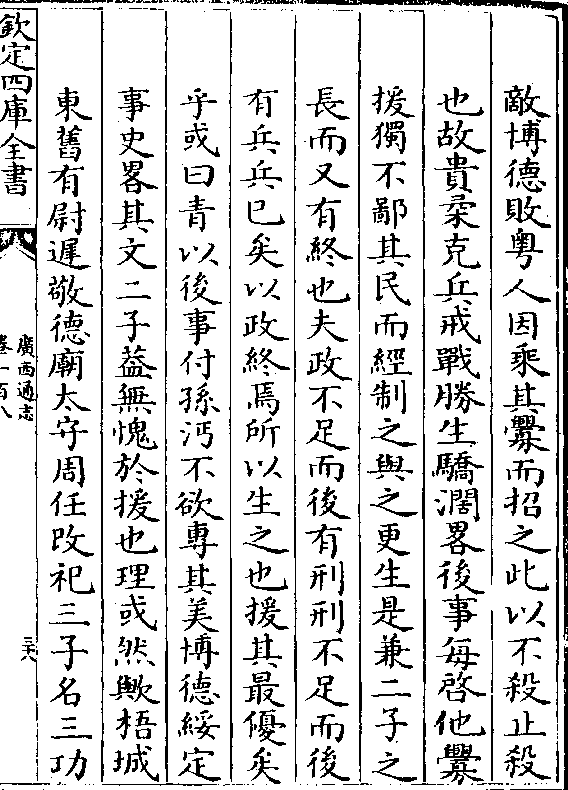 敵博德敗粤人因乘其釁而招之此以不殺止殺
也故貴柔克兵戒戰勝生驕濶畧後事每啓他釁
援獨不鄙其民而經制之與之更生是兼二子之
長而又有終也夫政不足而後有刑刑不足而後
有兵兵已矣以政終焉所以生之也援其最優矣
乎或曰青以後事付孫沔不欲專其美博德綏定
事史畧其文二子葢無愧於援也理或然歟梧城
東舊有尉遲敬德廟太守周任改祀三子名三功
欽定四庫全書
廣西通志
卷一百八
三六